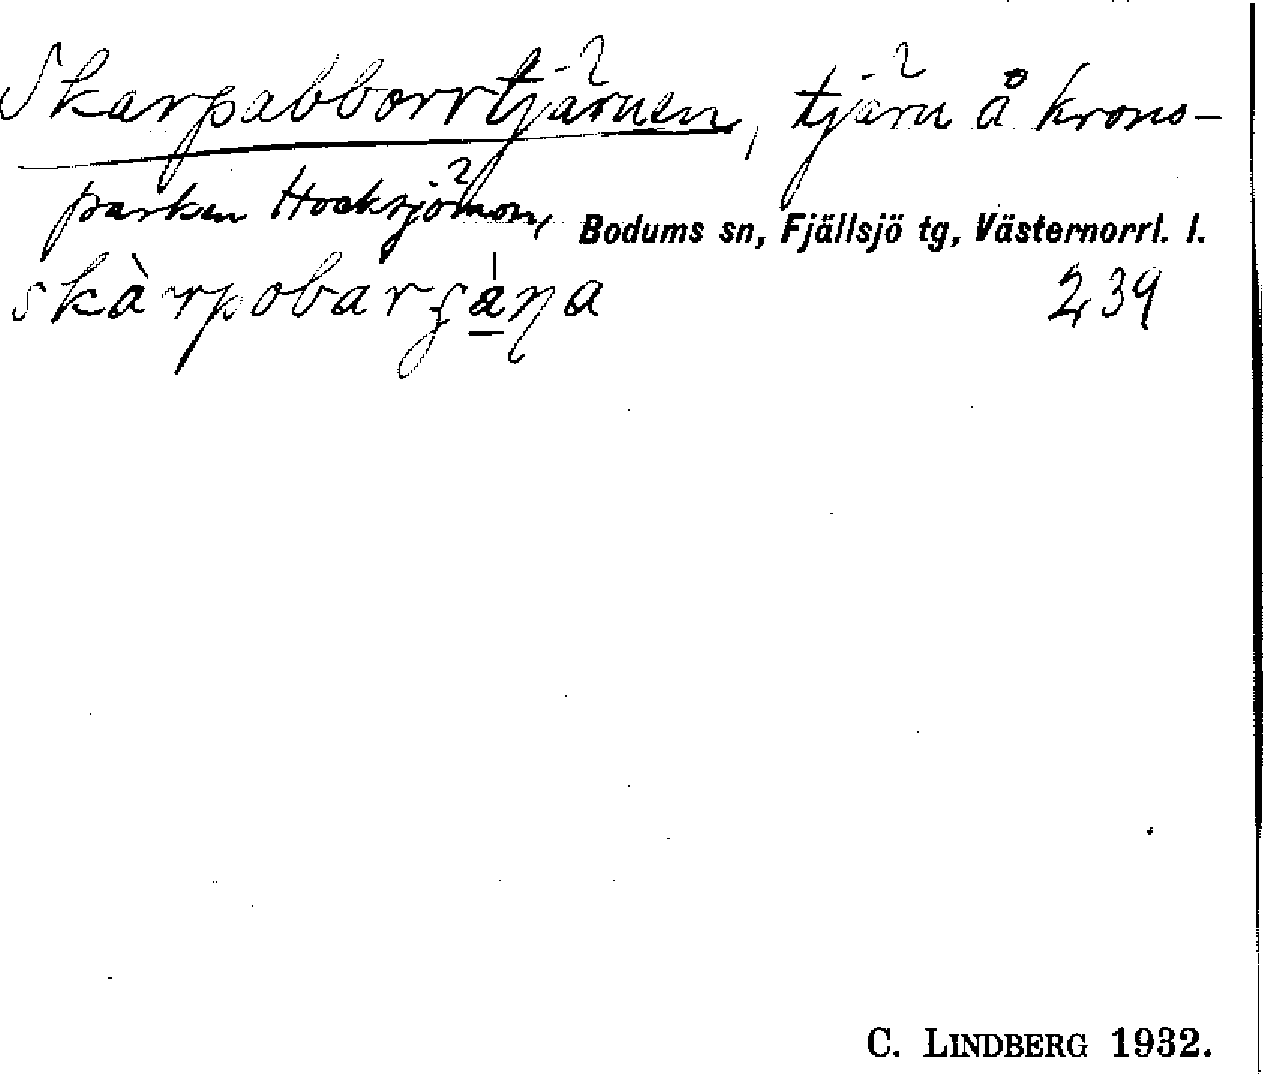 Skarpabborrtjärnen, tjärn å krono-
parken Hocksjömon, Bodums sn, Fjällsjö tg, Västernorrl. l.
239
C. LINDBERG 1932.